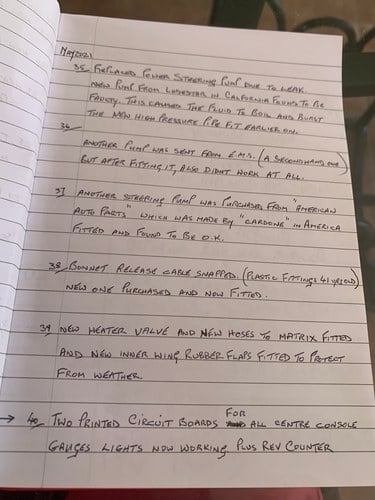 May 2021
35, Replaced Power Steering Pump due to leak.
New Pump from Lodestar in California found to be
faulty. This caused the fluid to boil and burst
the new high pressure pipe fit earlier on.
36,
Another pump was sent from E.M.S. (a secondhand one)
but after fitting it, also didnt work at all.
37, Another steering pump was purchased from "American
Auto Parts" which was made by "Cardone" in America
fitted and found to be O.K.
38, Bonnet release cable snapped. (Plastic fittings 41 yrs old)
New one purchased and now fitted.
39, New heater valve and new hoses to matrix fitted
and new inner wing rubber flaps fitted to protect
from weather.
→ 40, Two printed circuit boards for all centre console
gauges lights now working plus rev counter